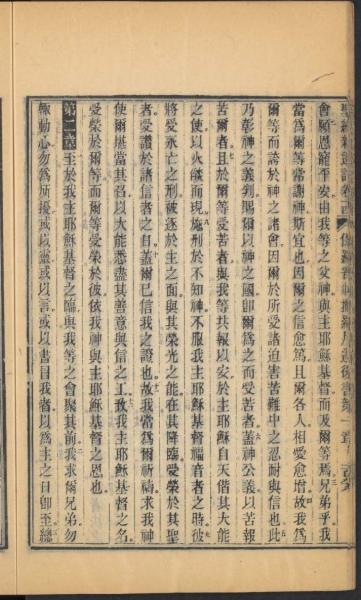 會願恩寵平安由我等之父神與主耶穌基督而及爾等焉兄弟乎我
當爲爾等常謝神斯宜也因爾之信愈篤且爾各人相愛愈增故我爲
爾等而誇於神之諸會因爾於所受諸迫害苦難中之忍耐與信也此
乃彰神之義判賜爾以神之國卽爾爲之而受苦者蓋神公義以苦報
苦爾者且於爾等受苦者與我等共報以安於主耶穌自天偕其大能
之使以火燄而現施刑於不知神不服我主耶穌基督福音者之時彼
將受永亡之刑被逐於主之面與其榮光之能在其降臨受榮於其聖
者受讚於諸信者之日蓋爾已信我之證也故我當爲爾祈禱求我神
使爾堪當其召以大能悉盡其善意與信之工致我主耶穌基督之名
受榮於爾等而爾等受榮於彼依我神與主耶穌基督之恩也
第二章至於我主耶穌基督之臨與我等之會聚其前我求爾兄弟勿
輒動心勿爲所擾或以靈或以言或以書目我者以爲主之日卽至總